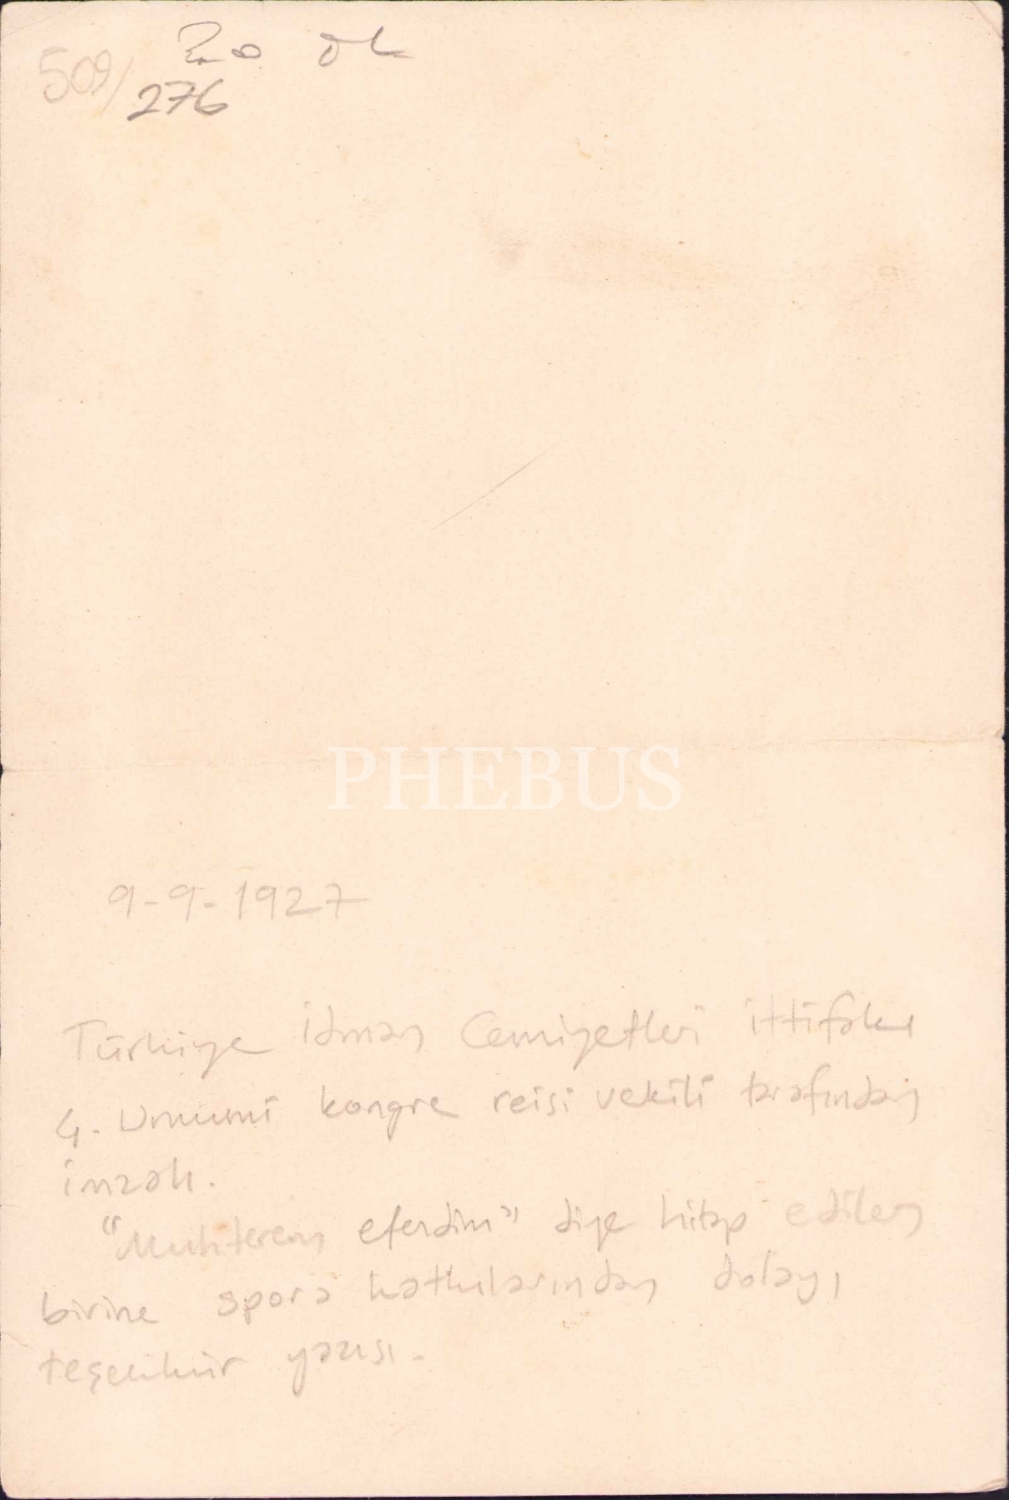 509/
276
PHEBUS
9-9-1927
Türkiye idman Cemiyetleri ittifakı
4. Umumi kongre reisi vekili tarafından
imzalı.
"Muhterem efendim" diye hitap edilen
birine spora katkılarından dolayı
teşekkür yazısı.